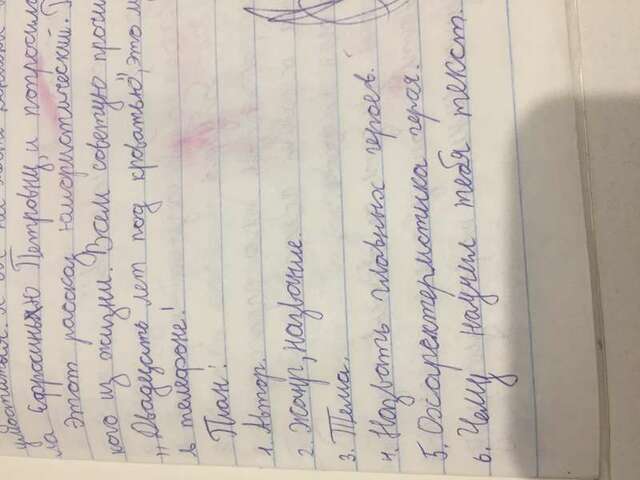 ла Ефросинью Петровну, и попросила
Этот рассказ юмористический.
кого из жизни. Вам советую прочи
"Двадцать лет под кроватью", это м
в телефоне!
План:
1. Автор.
2. Жанр, название.
3. Тема.
4. Назвать главных героев.
5. Охарактеристика героя.
6. Чему научил тебя текст.